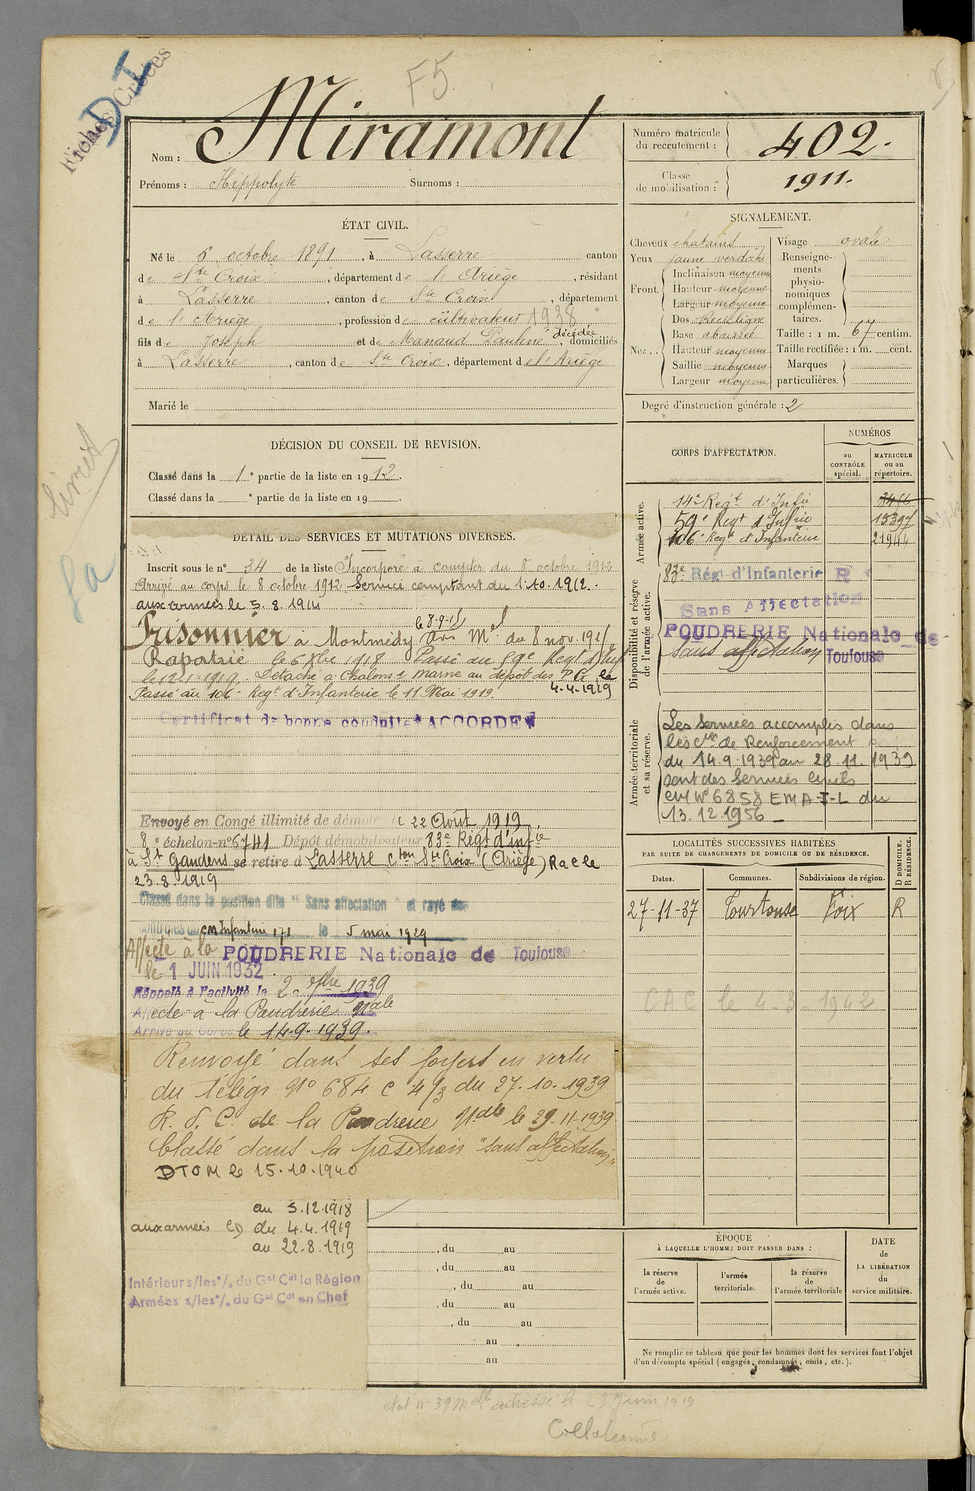 Fiches Créées
D I
F5
Nom : Miramont
Prénoms : Hippolyte Surnoms :
Numéro matricule du recrutement : 402.
Classe de mobilisation : 1911.
ÉTAT CIVIL.
Né le 6 octobre 1891, à Lasserre canton
de Ste Croix, département de l'Ariège, résidant
à Lasserre, canton de Ste Croix, département
de l'Ariège, profession de cultivateur 1938
fils de Joseph et de Manaud Pauline décédée, domiciliés
à Lasserre, canton de Ste Croix, département de l'Ariège
Marié le
SIGNALEMENT.
Cheveux chatains
Yeux jaune verdatre
Front. Inclinaison moyenne
Hauteur moyenne
Largeur moyenne
Nez.. Dos rectiligne
Base abaissée
Hauteur moyenne
Saillie moyenne
Largeur moyenne
Visage ovale
Renseignements physionomiques complémentaires.
Taille : 1 m. 67 centim.
Taille rectifiée : 1 m. cent.
Marques particulières.
Degré d'instruction générale : 2
DÉCISION DU CONSEIL DE REVISION.
Classé dans la 1e partie de la liste en 1912.
Classé dans la e partie de la liste en 19
DÉTAIL DES SERVICES ET MUTATIONS DIVERSES.
Inscrit sous le n° 34 de la liste Incorporé à compter du 8 octobre 1912
Arrivé au corps le 8 octobre 1912. Service comptant du 1.10.1912.
aux armées le 5.8.1914
le 8-9-15
Prisonnier à Montmédy Avis Mel du 8 nov. 1915
Rapatrié le 6 Xbre 1918 Passé au 59e Regt d'Inf
le 12-1-1919. Détaché à Chalons s Marne au dépot des P G le
4-4-1919
Passé au 106e Regt d'Infanterie le 11 Mai 1919.
Certificat de bonne conduite "ACCORDÉ"
Envoyé en Congé illimité de démob le 22 Août 1919.
8e échelon-n°6741 Dépôt démobilisateur 83e Régt d'infie
à St Gaudens se retire à Lasserre cton Ste Croix (Ariège) Rac le
23.8.1919
Classé dans la position dite "Sans affectation" et rayé des
contrôles du CM Infanterie 171 le 5 mai 1929
Affecté à la POUDRERIE Nationale de Toulouse
le 1 JUIN 1932
Rappelé à l'activité le 2 7bre 1939
Affecté à la Poudrerie Nale
Arrivé au Corps le 14-9-1939.
Renvoyé dans ses foyers en vertu
du télégr. N° 684 C 4/3 du 27-10-1939
R. d. C. de la Poudrerie Nale le 29-11-1939
Classé dans la position "sans affectation"
DTOM le 15.10.1940
au 5.12.1918
aux armées CD du 4.4.1919
au 22.8.1919
Intérieur s/les °/. du Gal Cdt la Région
Armées s/les °/. du Gal Cdt en Chef
, du au
, du au
, du au
, du au
, du au
au
au
CORPS D'AFFECTATION.
NUMÉROS
au CONTRÔLE spécial.
MATRICULE ou au répertoire.
Armée active.
14e Regt d'Infie
59e Regt d'Infie 15397
106e Regt d'Infanterie
Disponibilité et réserve de l'armée active.
83e Rég. d'Infanterie R
Sans Affectation
POUDRERIE Nationale de Toulouse
sans affectation
Armée territoriale et sa réserve.
Les services accomplis dans
les Cies de Renforcement
du 14.9.1939 au 28.11.1939
sont des Services Civils
CM N° 6858 EMA-I-L du
13.12.1956
LOCALITÉS SUCCESSIVES HABITÉES
PAR SUITE DE CHANGEMENTS DE DOMICILE OU DE RÉSIDENCE.
Dates. Communes. Subdivisions de région. D DOMICILE. R RÉSIDENCE.
27-11-37 Tourtouse Foix R
CAC le 4-3 1942
ÉPOQUE
À LAQUELLE L'HOMME DOIT PASSER DANS :
la réserve de l'armée active.
l'armée territoriale.
la réserve de l'armée territoriale
DATE de LA LIBÉRATION du service militaire.
Ne remplir ce tableau que pour les hommes dont les services font l'objet
d'un décompte spécial (engagés, condamnés, omis, etc.).
Collationné